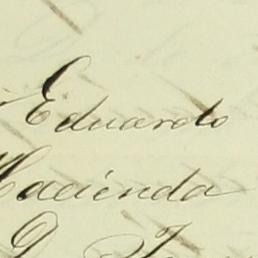 Eduardo
Hacienda